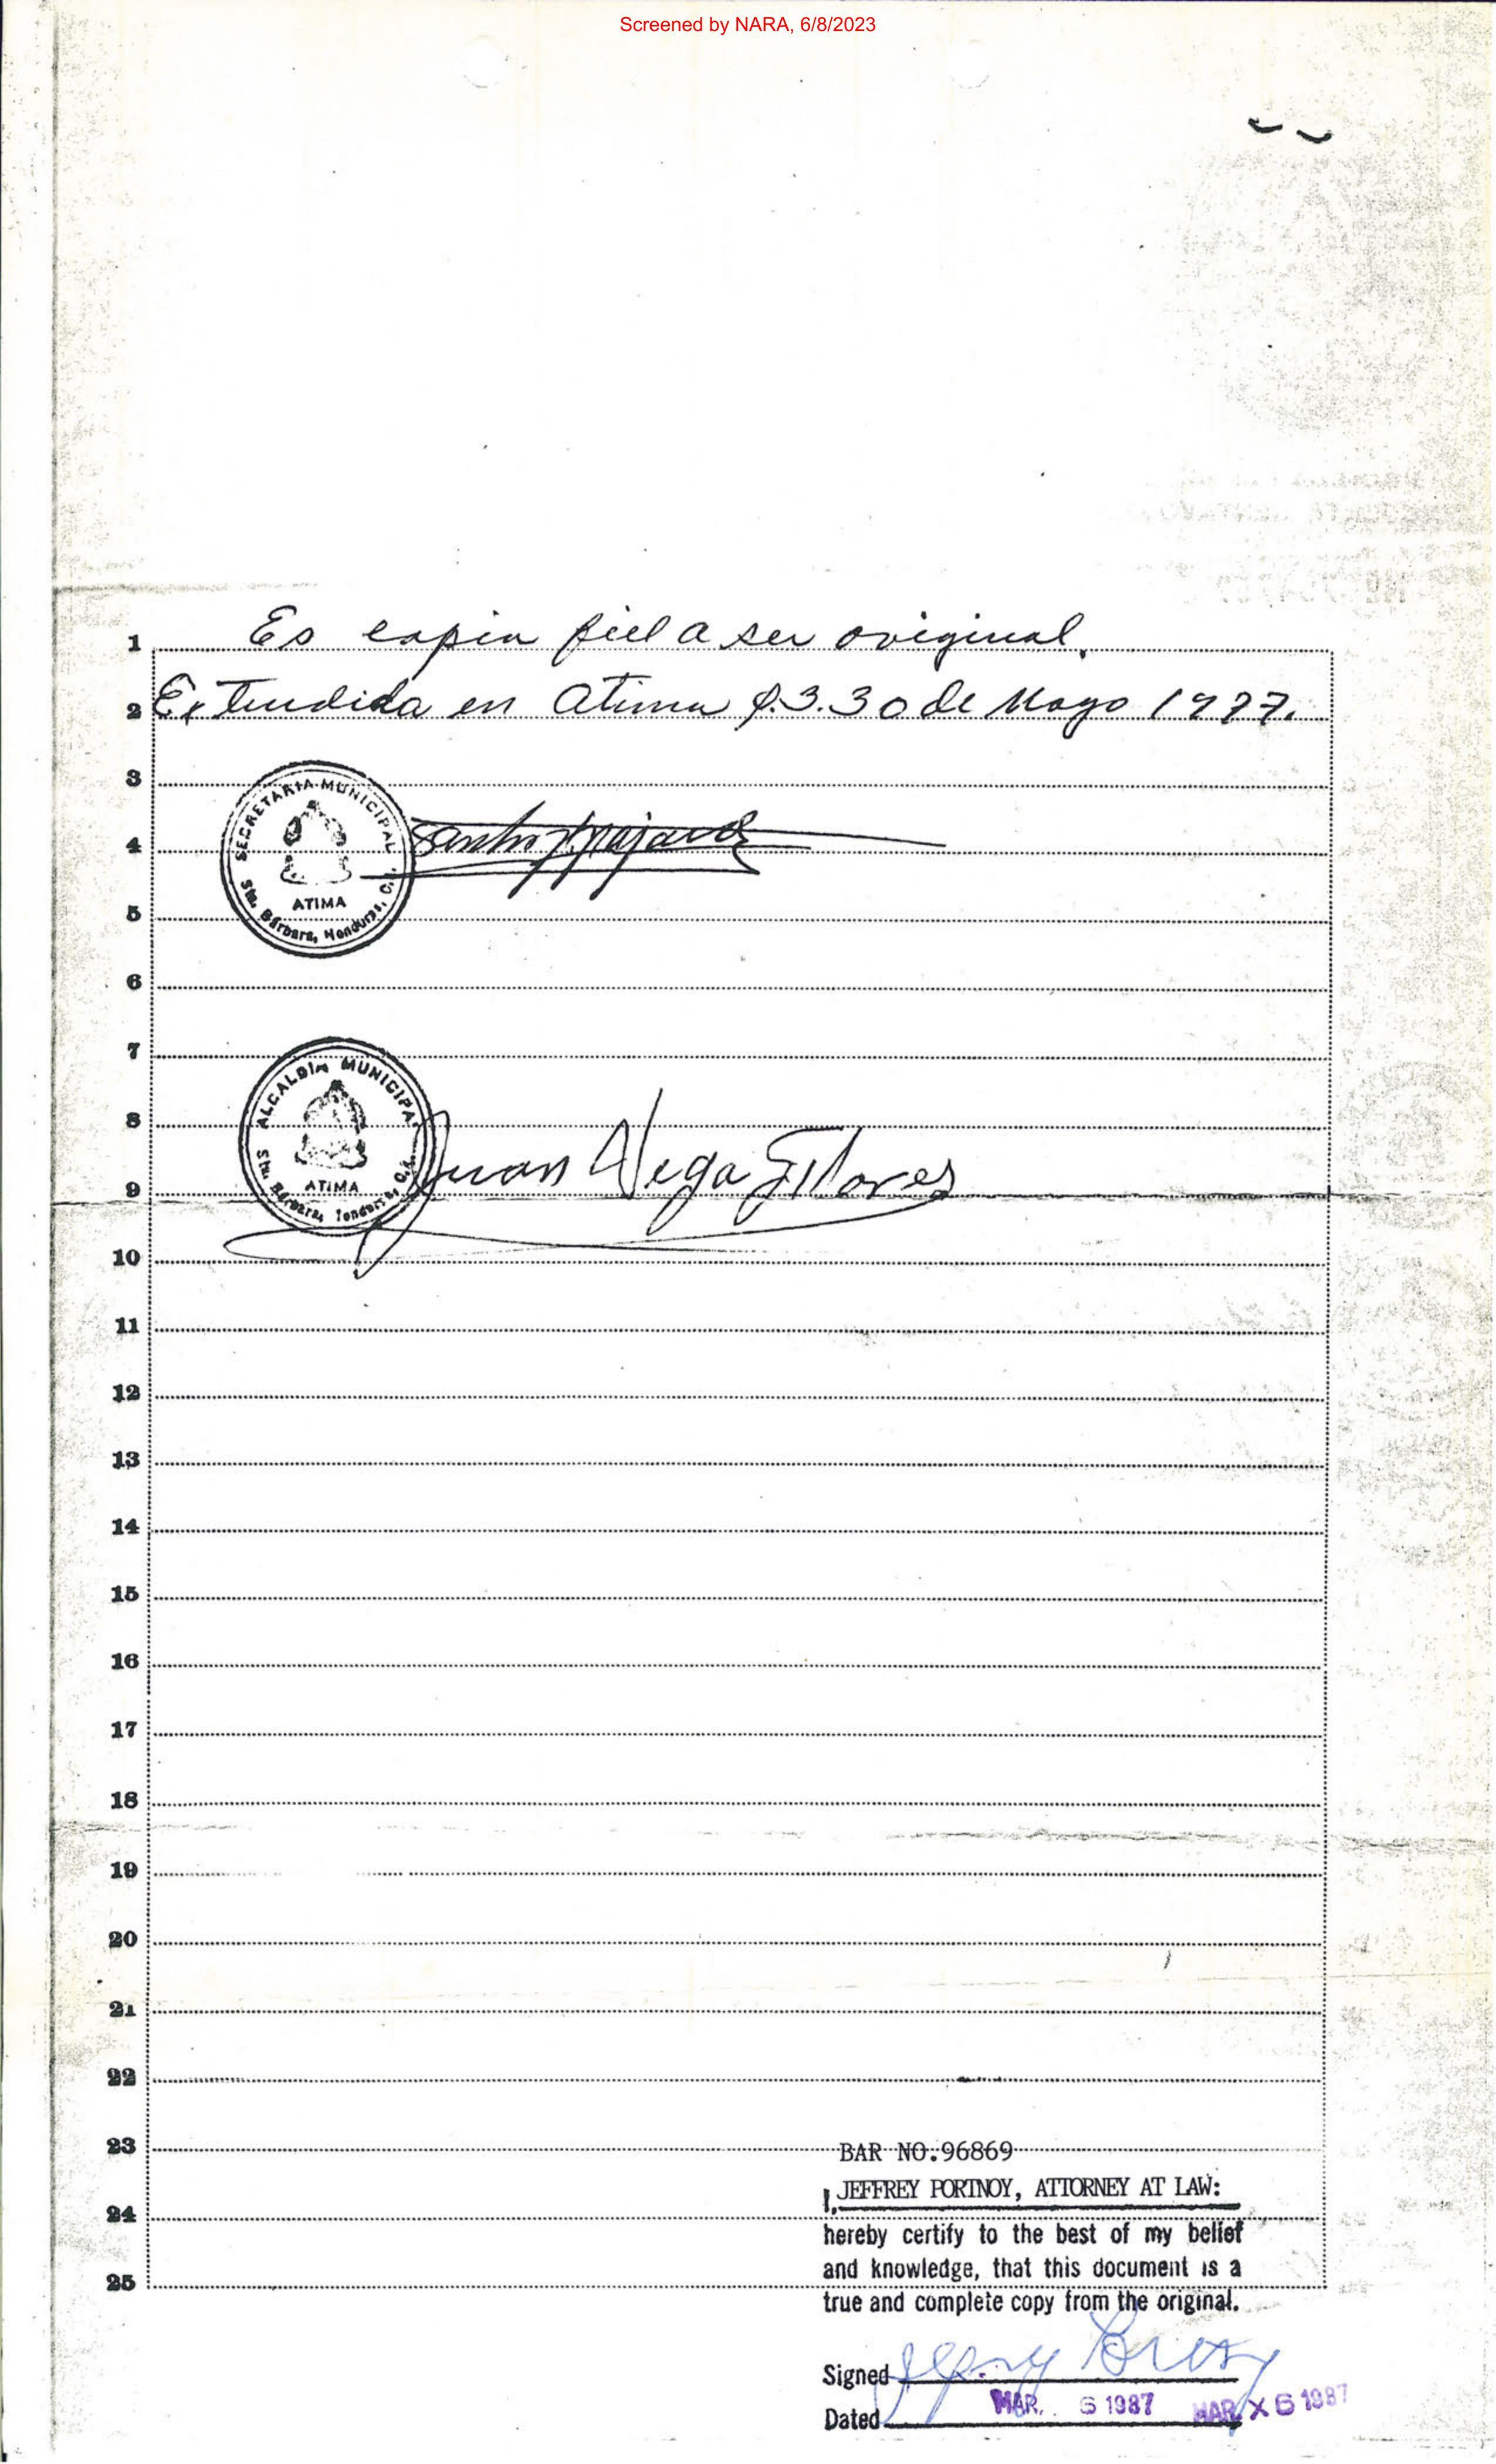 Screened by NARA, 6/8/2023
1 Es copia fiel a su original.
2 Extendida en Atima S.B. 30 de Mayo 1977.
3
SECRETARIA MUNICIPAL
ATIMA
Sta. Bárbara, Honduras, C.A.
4
5
6
7
ALCALDIA MUNICIPAL
ATIMA
Sta. Bárbara, Honduras, C.A.
8
Juan Vega Flores
9
10
11
12
13
14
15
16
17
18
19
20
21
22
23 BAR NO.96869
I, JEFFREY PORTNOY, ATTORNEY AT LAW:
24
hereby certify to the best of my belief
and knowledge, that this document is a
25
true and complete copy from the original.
Signed
Dated MAR. 6 1987 MAR X 6 1987